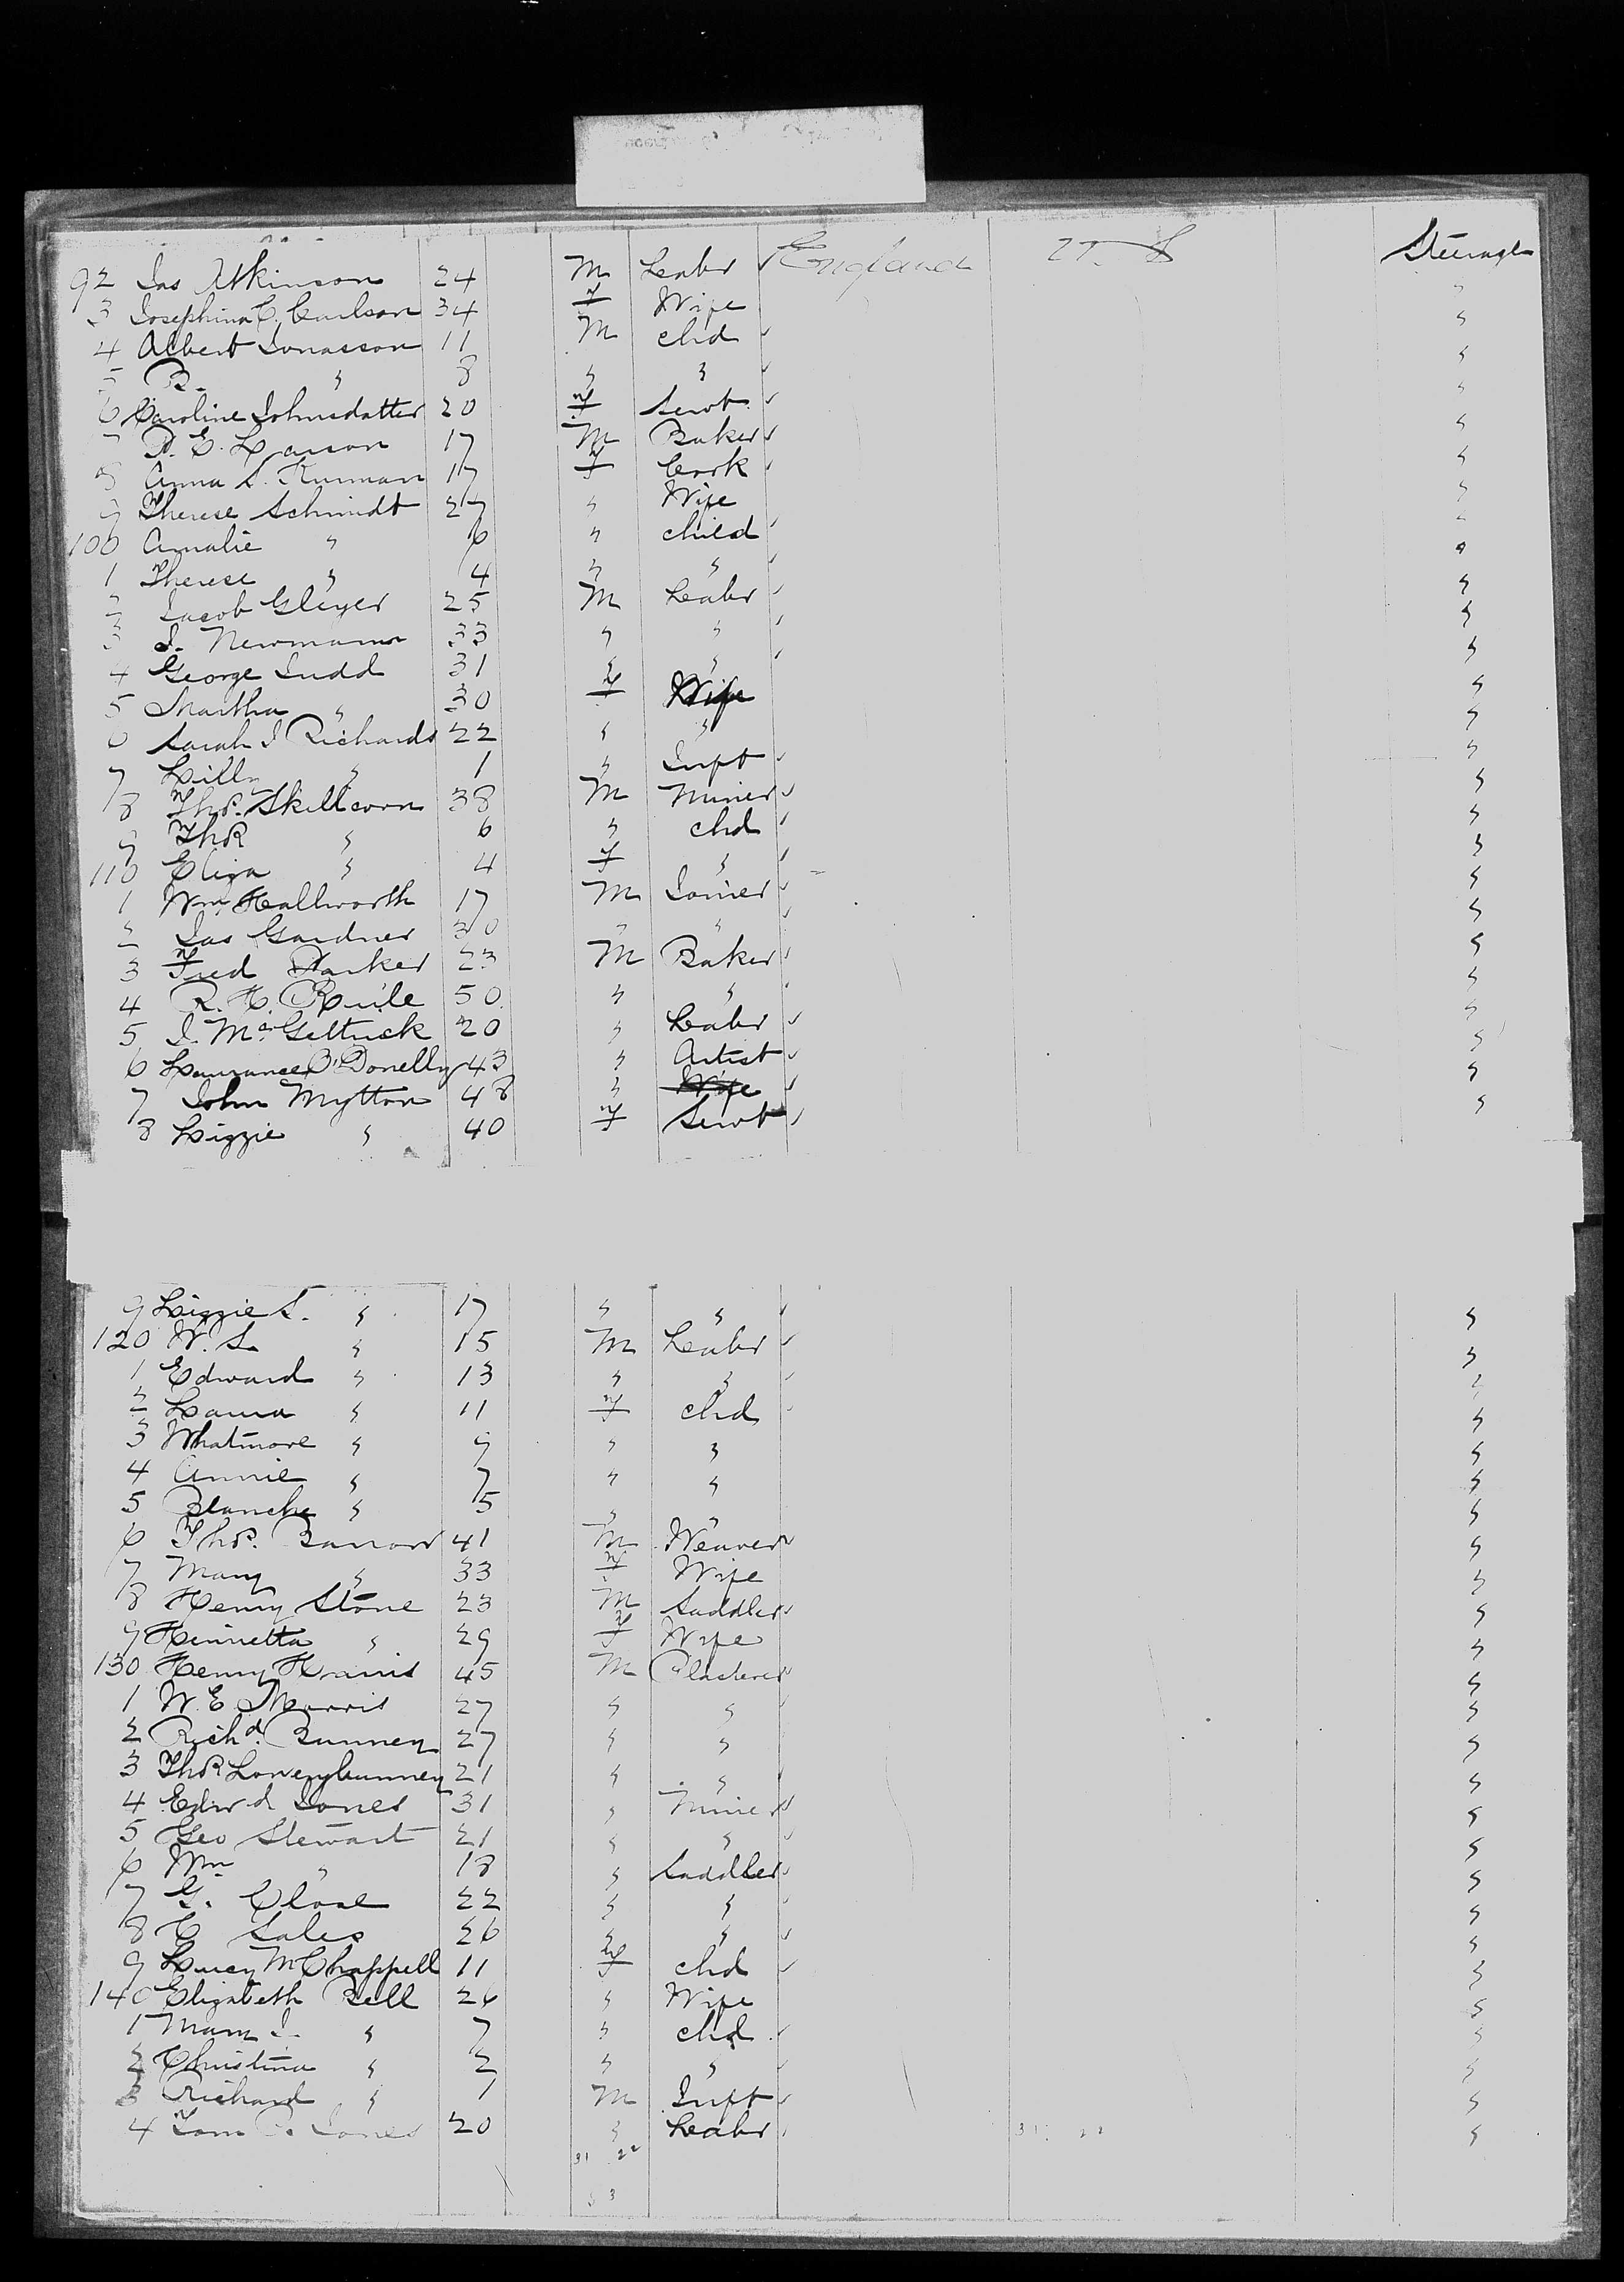 92 Jas Atkinson 24 M Labr England U. S Steerage
3 Josephina C. Carlson 34 F Wife "
4 Albert Jonasson 11 M chd "
5 B. " 8 " " "
6 Caroline Johnsdatter 20 F Servt "
7 P. E. Larson 17 M Baker "
8 Anna S. 17 F Cook "
9 Therese Schmidt 27 " Wife "
100 Amalie " 6 " child "
1 Therese " 4 " " "
2 Jacob Gleyer 25 M Labr "
3 J. Newmann 33 " " "
4 George Judd 31 " " "
5 Martha " 30 F Wife "
6 Sarah J Richards 22 " " "
7 Lilly " 1 " Inft "
8 Thos. Skillcorn 38 M Miner "
9 Thos " 6 " chd "
110 Eliza " 4 F " "
1 Wm Hallworth 17 M Joiner "
2 Jas Gardner 30 " " "
3 Fred Parker 23 M Baker "
4 R. H. 50 " " "
5 J. 20 " Labr "
6 Laurance O'Donelly 43 " Artist "
7 John Mytton 48 " Wife "
8 Lizzie " 40 F Servt "
9 Lizzie S. " 17 " " "
120 W. S. " 15 M Labr "
1 Edward " 13 " " "
2 Laura " 11 F chd "
3 Whatmore " 9 " " "
4 Annie " 7 " " "
5 Blanche " 5 " " "
6 Thos. Barrow 41 M Weaver "
7 Mary " 33 F Wife "
8 Henry Stone 23 M Saddler "
9 Henrietta " 29 F Wife "
130 Henry 45 M Plasterer "
1 W. E. Morris 27 " " "
2 Richd. Bunney 27 " " "
3 Thos Lowerybunney 21 " " "
4 Edwd Jones 31 " Miner "
5 Geo Stewart 21 " " "
6 Wm " 18 " Saddler "
7 G. Close 22 " " "
8 C Sales 26 " " "
9 Lucy M Chappell 11 F chd "
140 Elizabeth Bell 26 " Wife "
1 Mary J. " 7 " chd "
2 Christina " 2 " " "
3 Richard " 1 M Inft "
4 Tom Jones 20 " Labr "
31 22 31. 22
53